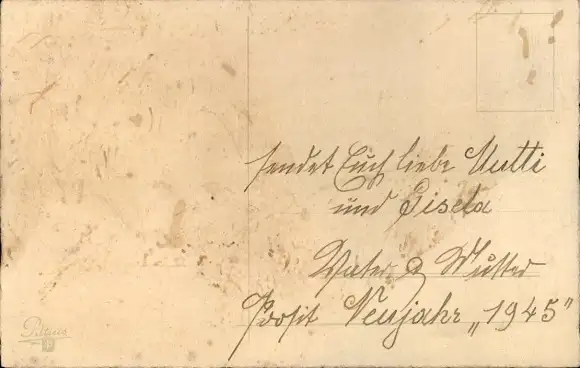 sendet Euch liebe Mutti
und Gisela
Vater & Mutter
Prosit Neujahr „1945"